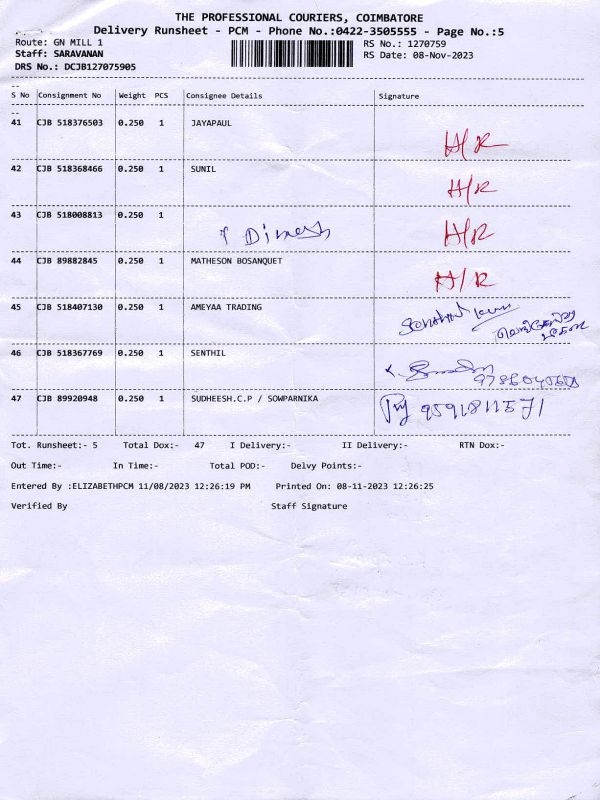 THE PROFESSIONAL COURIERS, COIMBATORE
Delivery Runsheet - PCM - Phone No.:0422-3505555 - Page No.:5
Route: GN MILL 1 RS No.: 1270759
Staff: SARAVANAN RS Date: 08-Nov-2023
DRS No.: DCJB127075905
S No Consignment No Weight PCS Consignee Details Signature
41 CJB 518376503 0.250 1 JAYAPAUL H/R
42 CJB 518368466 0.250 1 SUNIL H/R
43 CJB 518008813 0.250 1 Dinesh H/R
44 CJB 89882845 0.250 1 MATHESON BOSANQUET H/R
45 CJB 518407130 0.250 1 AMEYAA TRADING
46 CJB 518367769 0.250 1 SENTHIL
47 CJB 89920948 0.250 1 SUDHEESH.C.P / SOWPARNIKA
Tot. Runsheet:- 5 Total Dox:- 47 I Delivery:- II Delivery:- RTN Dox:-
Out Time:- In Time:- Total POD:- Delvy Points:-
Entered By :ELIZABETHPCM 11/08/2023 12:26:19 PM Printed On: 08-11-2023 12:26:25
Verified By Staff Signature